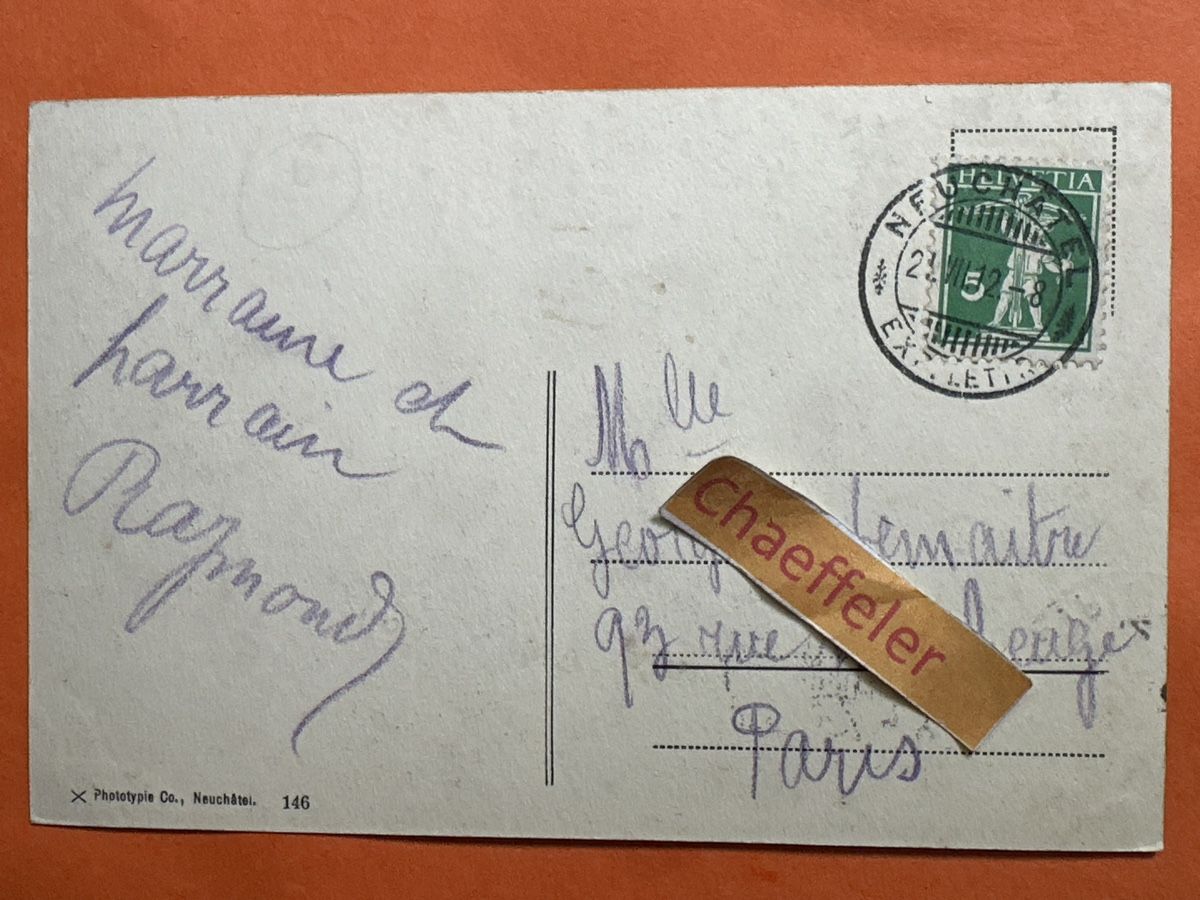 marraine et
parrain
Raymond
HELVETIA
5
NEUCHATEL
VII.12.-8
EXP. LETTR.
Mlle
Lemaitre
93 rue
Paris
Chaeffeler
Phototypie Co., Neuchâtel. 146